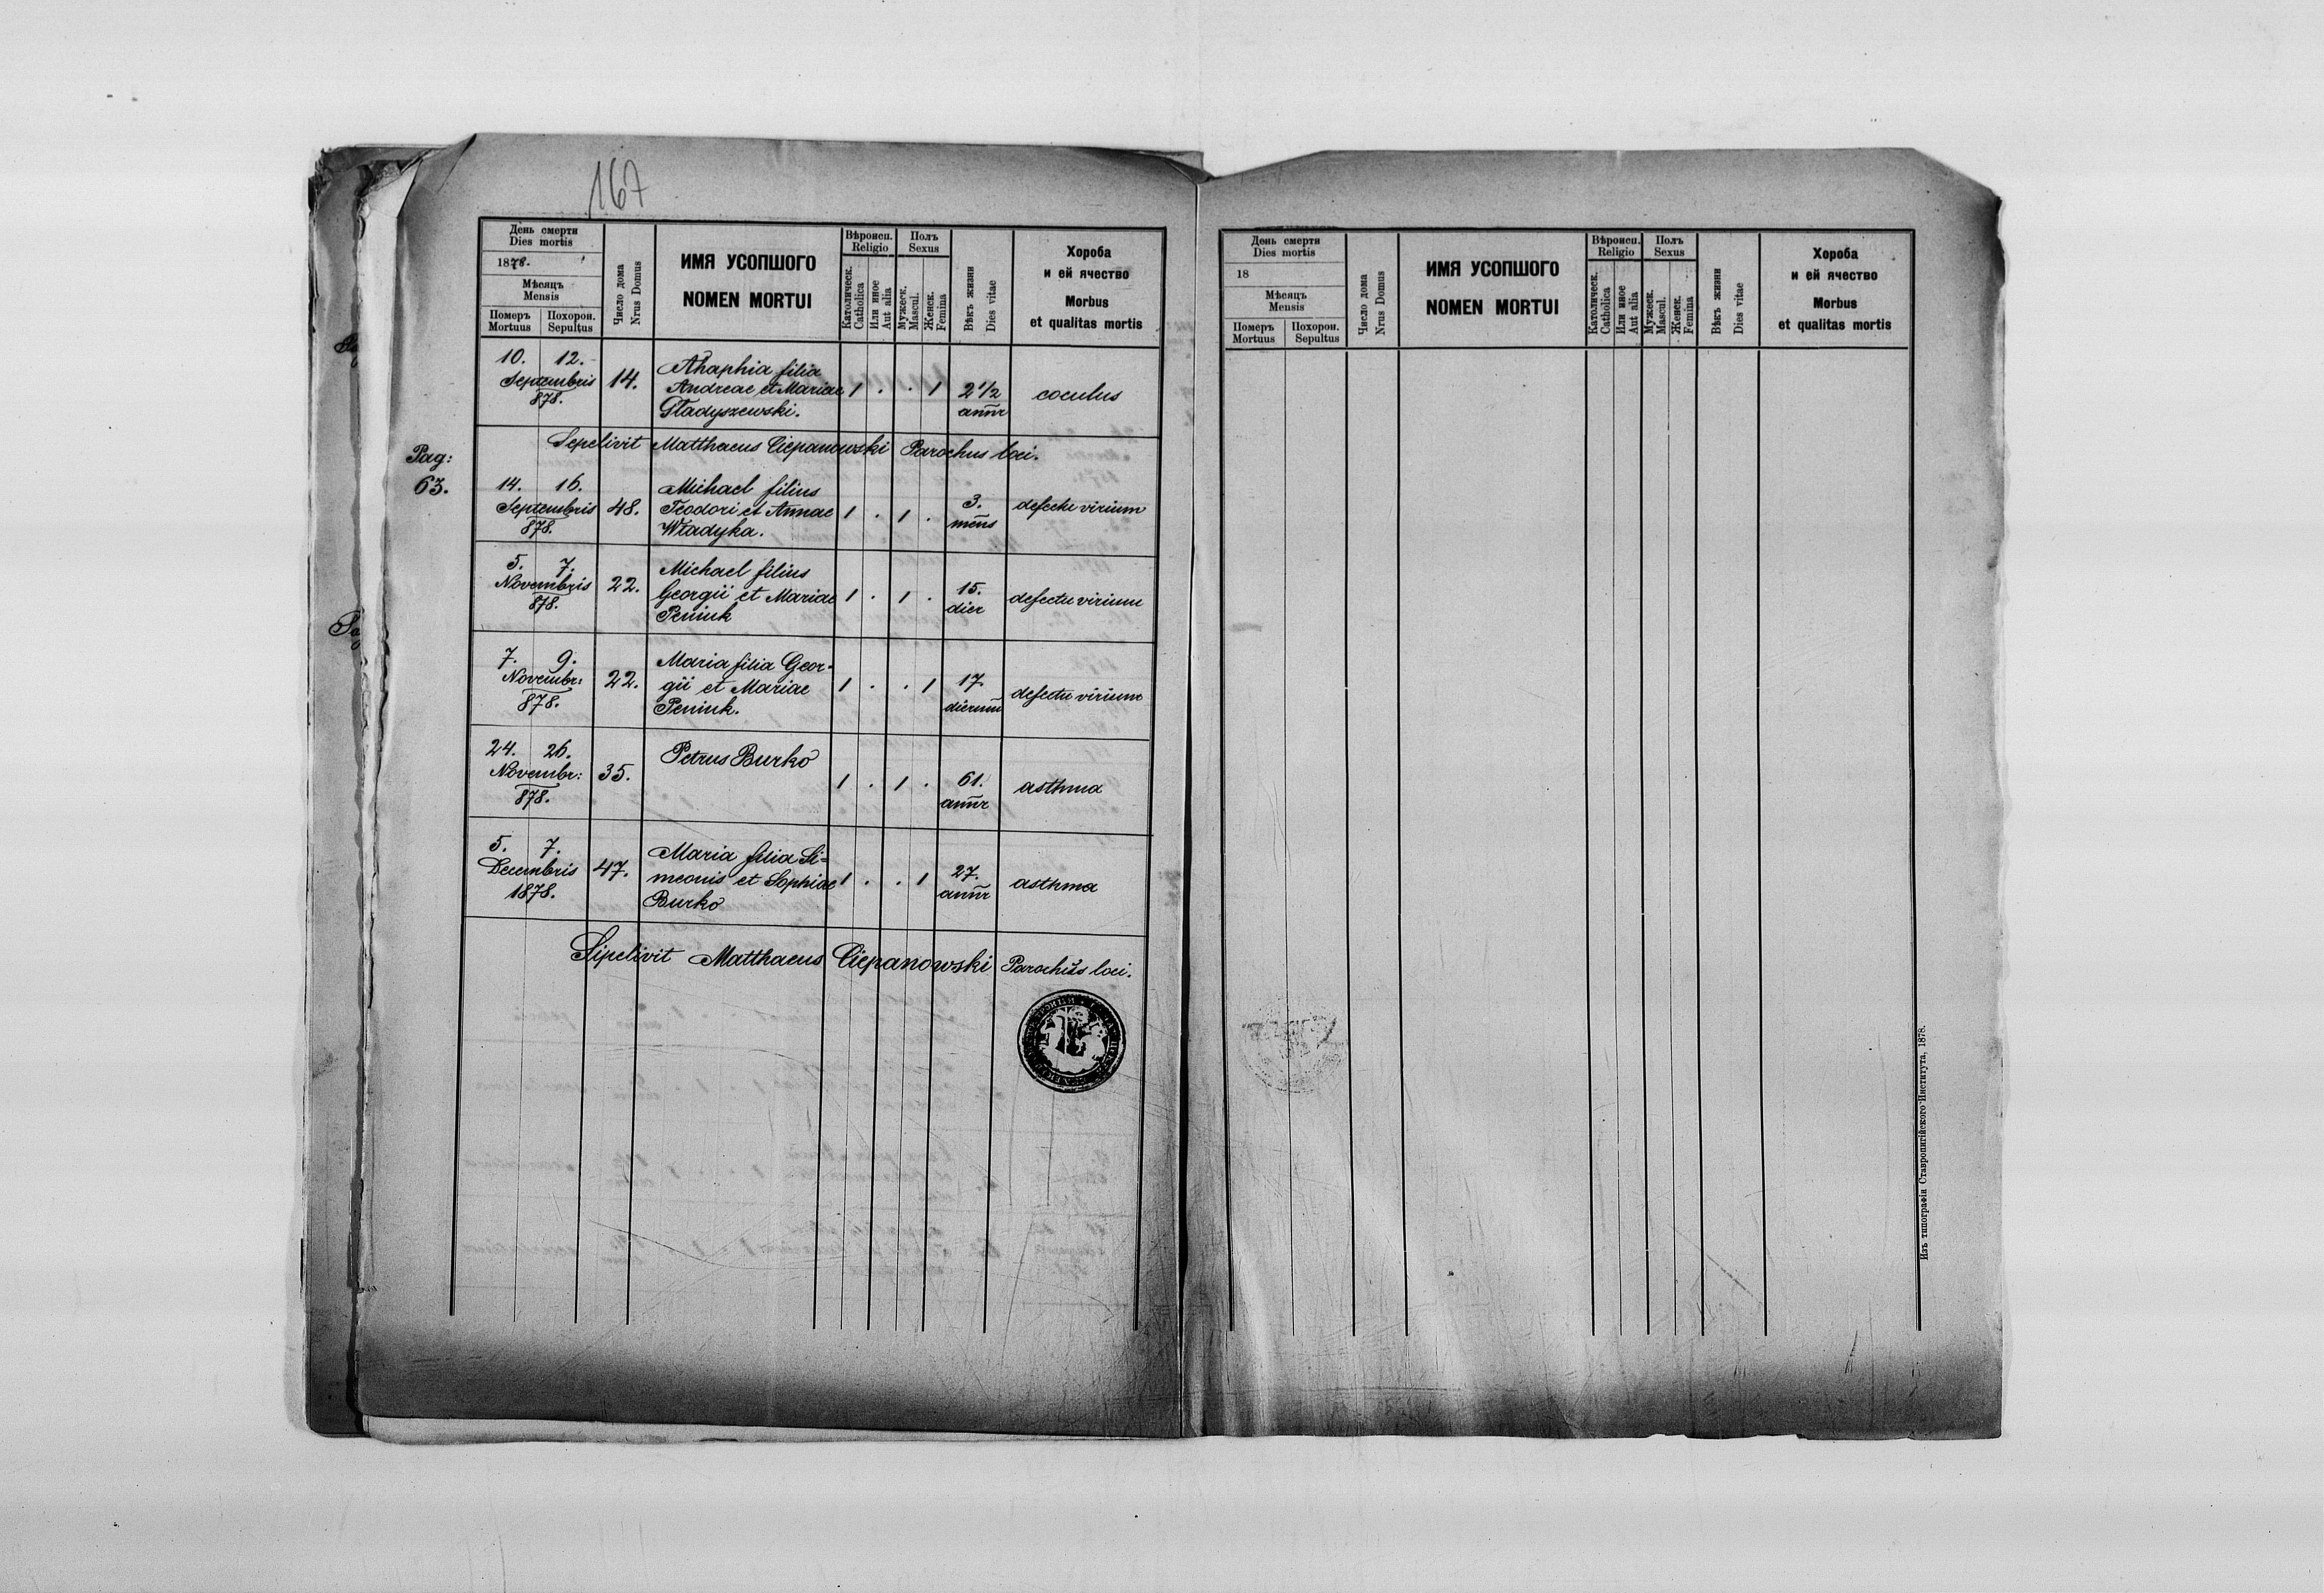 167
День смерти
Dies mortis
1878.
Мѣсяцъ
Mensis
Померъ Похорон.
Mortuus Sepultus
Число дома
Nrus Domus
ИМЯ УСОПШОГО
NOMEN MORTUI
Вѣроисп.
Religio
Католическ.
Catholica
Или иное
Aut alia
Полъ
Sexus
Мужеск.
Mascul.
Женск.
Femina
Вѣкъ жизни
Dies vitae
Хороба
и ей ячество
Morbus
et qualitas mortis
10. 12.
Septembris
878.
14.
Ahaphia filia
Andreae et Mariae
Gładyszewski.
1 . . 1
2 1/2
annr
coculus
Sepelivit Matthaeus Ciepanowski Parochus loci.
Pag:
63.
14. 16.
Septembris
878.
48.
Michael filius
Teodori et Annae
Władyka.
1 . 1 .
3.
mens
defectu virium
5. 7.
Novembris
878.
22.
Michael filius
Georgii et Mariae
Peniuk
1 . 1 .
15.
dier
defectu virium
7. 9.
Novembr:
878.
22.
Maria filia Geor-
gii et Mariae
Peniuk.
1 . . 1
17
dierum
defectu virium
24. 26.
Novembr:
878.
35.
Petrus Burko
1 . 1 .
61.
annr
asthma
5. 7.
Decembris
1878.
47.
Maria filia Si=
meonis et Sophiae
Burko
1 . . 1
27.
annr
asthma
Sipelivit Matthaeus Ciepanowski Parochus loci.
День смерти
Dies mortis
18
Мѣсяцъ
Mensis
Померъ Похорон.
Mortuus Sepultus
Число дома
Nrus Domus
ИМЯ УСОПШОГО
NOMEN MORTUI
Вѣроисп.
Religio
Католическ.
Catholica
Или иное
Aut alia
Полъ
Sexus
Мужеск.
Mascul.
Женск.
Femina
Вѣкъ жизни
Dies vitae
Хороба
и ей ячество
Morbus
et qualitas mortis
Изъ типографіи Ставропигійского Института, 1878.